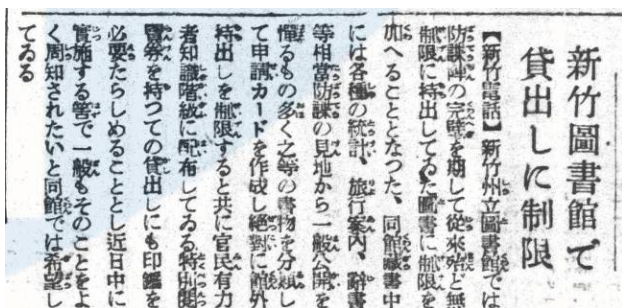 新竹圖書館で
貸出しに制限
【新竹電話】新竹州立圖書館では
防諜陣の完璧を期して從來殆ど無
制限に持出してゐた圖書に制限を
加へることとなつた、同館藏書中
には各種の統計、旅行案內、辭書
等相當防諜の見地から一般公開を
憚るもの多く之等の書物を分類し
て申請カードを作成し絕對に館外
持出しを制限すると共に官民有力
者知識階級に配布してゐる特別閱
覽券を持つての貸出しにも印鑑を
必要たらしめることとし近日中に
實施する筈で一般もそのことをよ
く周知されたいと同館では希望し
てゐる